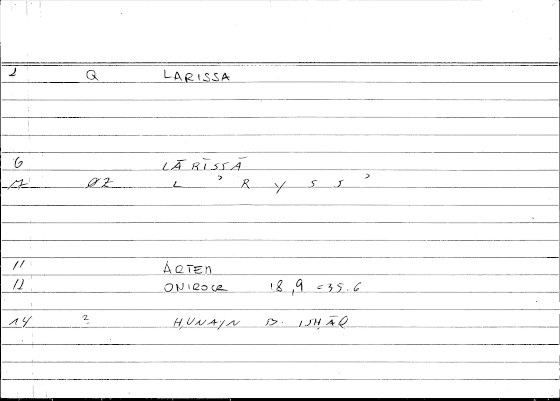 1 Q LARISSA
6 LĀRĪSSĀ
7 ØZ L ʾ R Y S S ʾ
11 ARTEM
12 ONIROCR 18,9 = 35.6
14 2 ḤUNAYN B. ISḤĀQ